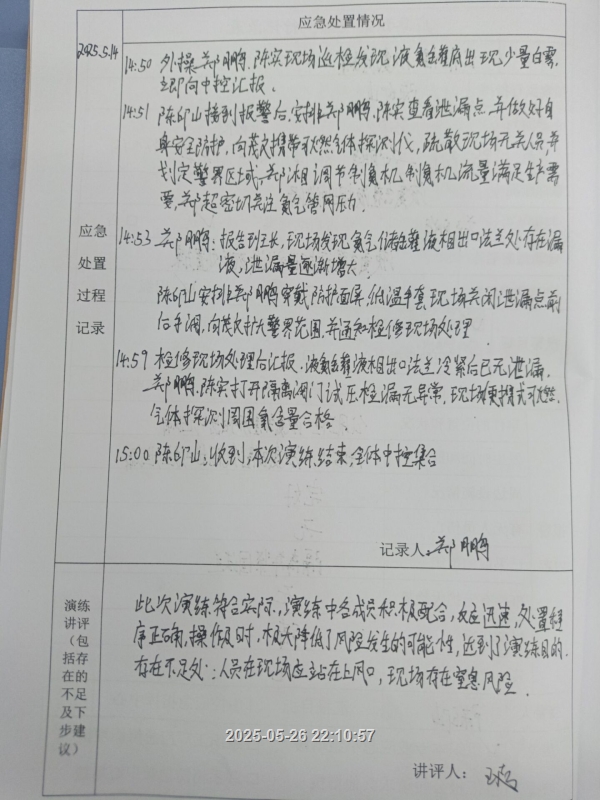 应急处置情况
2025.5.14
14:50 外操郑鹏鹏、陈实现场巡检发现液氮储罐底出现少量白雾,
立即向中控汇报.
14:51 陈山接到报警后,安排郑鹏鹏、陈实查看泄漏点,并做好自
身安全防护,向茂文携带可燃气体探测仪,疏散现场无关人员并
划定警界区域,郑沐相调节制氮机,制氮机流量满足生产需
要,郑超密切关注氮气管网压力.
应急
处置
过程
记录
14:53 郑鹏鹏:报告班长,现场发现氮气储罐液相出口法兰处存在漏
液,泄漏量逐渐增大.
陈山安排郑鹏鹏穿戴防护面屏,低温手套现场关闭泄漏点前
后手阀,向茂文扩大警界范围,并通知检修现场处理.
14:59 检修现场处理后汇报,液氮储罐液相出口法兰冷紧后已无泄漏.
郑鹏鹏、陈实打开隔离阀门试压检漏无异常,现场便携式可燃
气体探测周围氧含量合格.
15:00 陈山:收到,本次演练结束,全体中控集合
记录人:郑鹏鹏
演练
讲评
(包
括存
在的
不足
及下
步建
议)
此次演练符合实际,演练中各成员积极配合,反应迅速,处置程
序正确,操作及时,极大降低了风险发生的可能性,达到了演练目的.
存在不足处:人员在现场应站在上风口,现场存在窒息风险.
2025-05-26 22:10:57
讲评人: